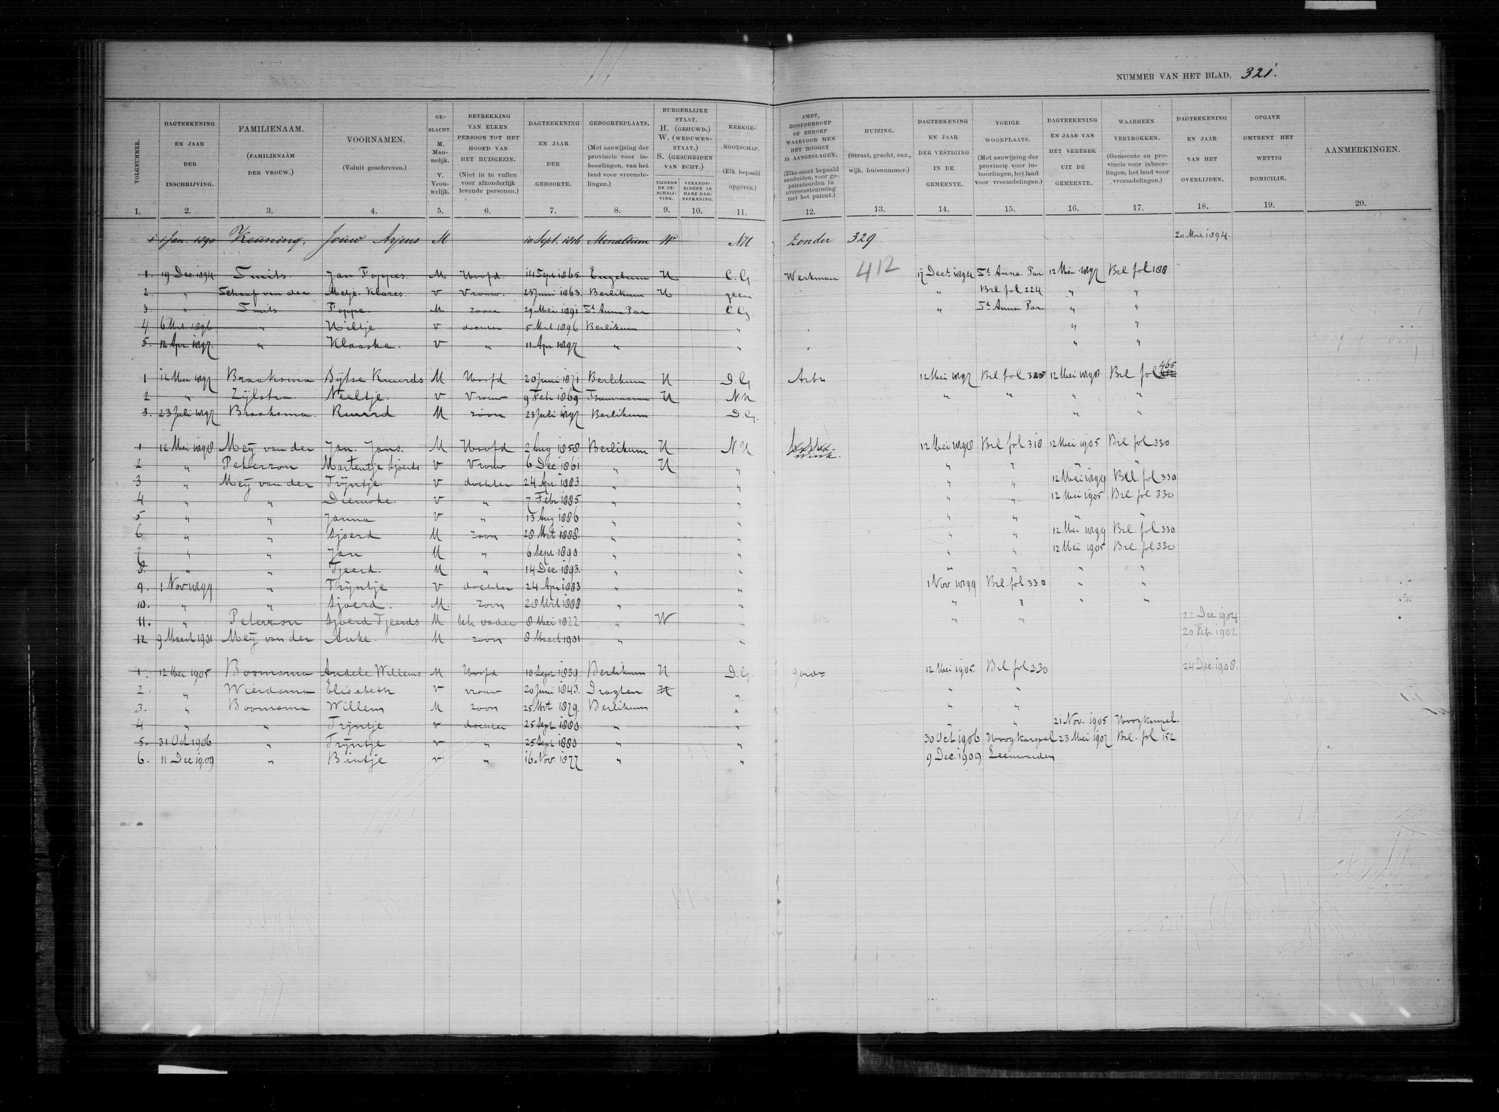 NUMMER VAN HET BLAD. 321.
VOLGNUMMER.
DAGTEEKENING EN JAAR DER INSCHRIJVING.
FAMILIENAAM. (FAMILIENAAM DER VROUW.)
VOORNAMEN. (Voluit geschreven.)
GESLACHT. M. Mannelijk. V. Vrouwelijk.
BETREKKING VAN ELKEN PERSOON TOT HET HOOFD VAN HET HUISGEZIN. (Niet in te vullen voor afzonderlijk levende personen.)
DAGTEEKENING EN JAAR DER GEBOORTE.
GEBOORTEPLAATS. (Met aanwijzing der provincie voor inboorlingen, van het land voor vreemdelingen.)
BURGERLIJKE STAAT. H. (GEHUWD.) W. (WEDUWENSTAAT.) S. (GESCHEIDEN VAN ECHT.)
KERKGENOOTSCHAP. (Elk bepaald opgeven.)
HUIZING. (Straat, gracht, enz., wijk, huisnummer.)
DAGTEEKENING EN JAAR DER VESTIGING IN DE GEMEENTE.
VORIGE WOONPLAATS. (Met aanwijzing der provincie voor inboorlingen, het land voor vreemdelingen.)
DAGTEEKENING EN JAAR VAN HET VERTREK UIT DE GEMEENTE.
WAARHEEN VERTROKKEN. (Gemeente en provincie voor inboorlingen, het land voor vreemdelingen.)
DAGTEEKENING EN JAAR VAN HET OVERLIJDEN.
OPGAVE OMTRENT HET WETTIG DOMICILIE.
AANMERKINGEN.
1. 2. 3. 4. 5. 6. 7. 8. 9. 10. 11. 12. 13. 14. 15. 16. 17. 18. 19. 20.
1 Jan. 1890 Keuning. Jouw Arjens M 10 Sept. 1816 Menaldum W NH zonder 329 20 Mei 1894
1. 19 Dec 1894 Smits Jan Poppes. M Hoofd 14 Sept 1865 H C.G Werkman 412 17 Dec 1894 St Anna Par 12 Mei 1897 Brl fol 188
2 " Schaaf van der Metje Klazes. v Vrouw. 23 Juni 1863. Berlikum H geen " Brl fol 224 " "
3 " Smits Poppe. M zoon 29 Mei 1892 St Anna Par C.G " St Anna Par " "
4 6 Mrt 1896 " Hiltje v dochter 5 Mrt 1896 Berlikum " " "
5. 12 Apr 1897 " Klaaske. v " 11 Apr 1897 " " " "
1 12 Mei 1897 Braaksma Bijtse Ruurds M Hoofd 20 Juni 1871 Berlikum H D.G Arbr 12 Mei 1897 Brl fol 12 Mei 1898 Brl fol 465
2 " Zijlstra Neeltje. v Vrouw 9 Febr 1869 H NH " " " "
3. 23 Juli 1897 Braaksma. Ruurd M zoon 23 Juli 1897 Berlikum D.G. " "
1 12 Mei 1898 Meij van der Jan Jans. M Hoofd 2 Aug 1858 Berlikum H NH 12 Mei 1898 Brl fol 318 12 Mei 1905 Brl fol 330
2 " Peterson Martentje Sjoerds v Vrouw 6 Dec 1861 " H " " " " "
3 " Meij van der Trijntje v dochter 24 Apr 1883 " " " " 12 Mei 1899 Brl fol 330
4 " " Dieuwke. v " 7 Febr 1885 " " " " 12 Mei 1905 Brl fol 330
5 " " Janna v " 13 Aug 1886 " " " " " "
6 " " Sjoerd M zoon 28 Mrt 1888 " " " " 12 Mei 1899 Brl fol 330
7 " " Jan M " 6 Sept 1890 " " " " 12 Mei 1905 Brl fol 330
8. " " Tjeerd. M " 14 Dec 1893. " " " " " "
9. 1 Nov 1899 " Trijntje v dochter 24 Apr 1883 " " 1 Nov 1899 Brl fol 330 " "
10. " " Sjoerd. M. zoon 28 Mrt 1888 " " " "
11. " Peterson Sjoerd Tjeerds M beh vader 8 Mei 1822 " W " " " 22 Dec 1904
12 9 Maart 1901 Meij van der Auke M zoon 8 Maart 1901 " " 20 Feb 1902
1. 12 Mei 1905 Boomsma Andele Willems M Hoofd 10 Sept 1839 Berlikum H D.G. 12 Mei 1905 Brl fol 330 24 Dec 1908.
2. " Wierdsma Elisabeth v vrouw 20 Juni 1843. Dragten H " " "
3. " Boomsma Willem M zoon 25 Mrt 1879. Berlikum " " "
4 " " Trijntje v dochter 25 Sept 1880 " " " " 21 Nov. 1905 Hoogkarspel
5. 31 Oct 1906 " Trijntje v " 25 Sept 1880 " " 30 Oct 1906 Hoogkarspel 23 Mei 1907 Brl. fol 152
6. 11 Dec 1909 " Bintje v " 16 Nov. 1877 " " 9 Dec. 1909 Leeuwarden